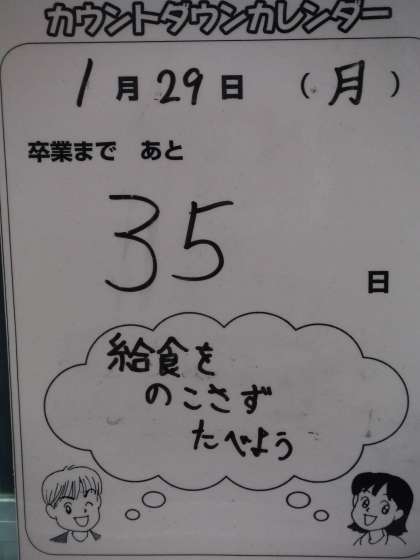 カウントダウンカレンダー
1月29日（月）
卒業まで あと
35
日
給食を
のこさず
たべよう